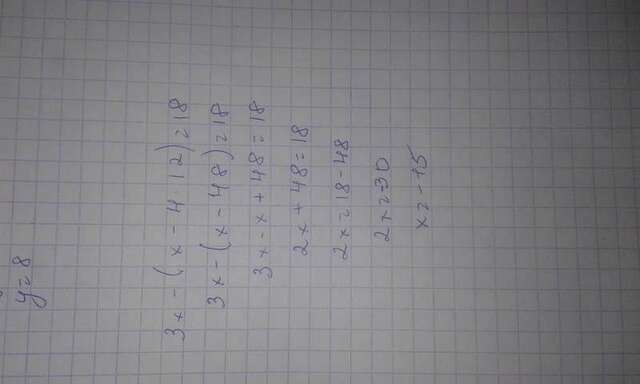 y = 8
3x - (x - 4 · 12) = 18
3x - (x - 48) = 18
3x - x + 48 = 18
2x + 48 = 18
2x = 18 - 48
2x = -30
x = -15